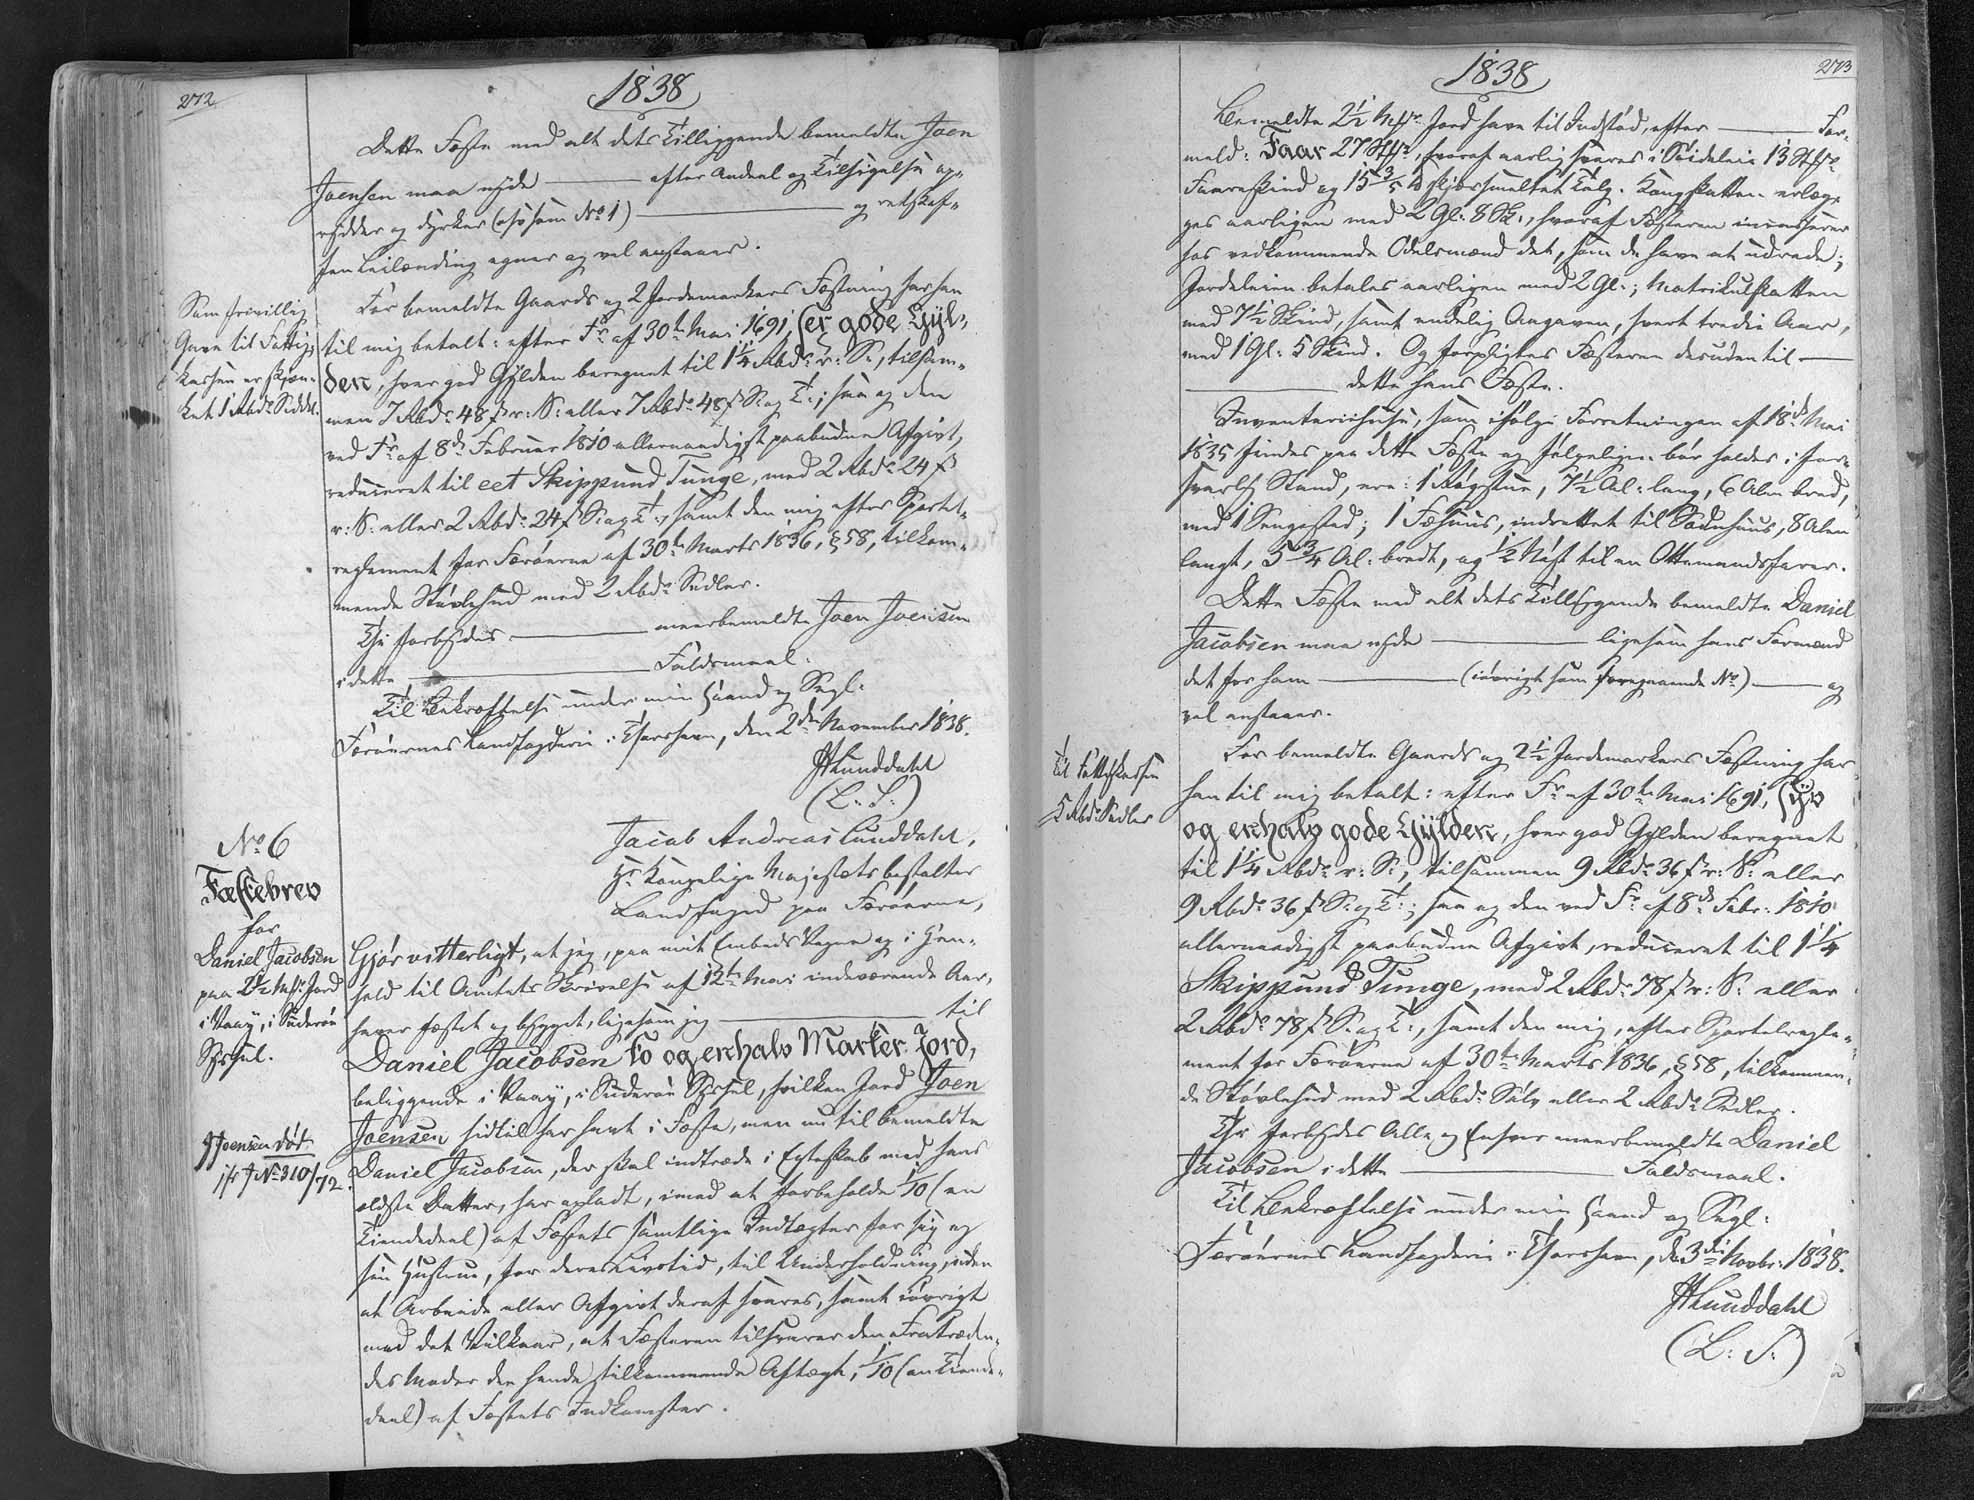 272
1838
Dette Fæste med alt dets Tilliggende bemeldte Joen
Joensen maa nyde ——— efter Andeel og Tilsigelse op-
rydder og dyrker (osv som No 1) ——— og retskaf-
fen Leilænding egner og vel anstaaer.
Som frivillig
Gave til Fattig-
kassen er skjæn-
ket 1 Rbd. Seddel.
For bemeldte Gaards og 2 Jordemarkers Fæstning har han
til mig betalt: efter Fr. af 30te Mai 1691, sex gode Gyl-
den, hver god Gylden beregnet til 1¼ Rbd. r: S:, tilsam-
men 7 Rbd. 48 ß r: S: eller 7 Rbd. 48 ß S. og T.; saa og den
ved Fr. af 8de Februar 1810 allernaadigst paabudne Afgivt,
reduceret til eet Skippund Tunge, med 2 Rbd. 24 ß
r: S: eller 2 Rbd. 24 ß S. og T., samt den mig efter Sportel-
reglement for Færøerne af 30te Marts 1836, § 58, tilkom-
mende Støvlehud med 2 Rbd. Sedler.
Thi forbydes ——— meerbemeldte Joen Joensen
i dette ——— Faldsmaal.
Til Bekræftelse under min Haand og Segl.
Færøernes Landfogderie i Thorshavn, den 2den November 1838.
JALunddahl
(L. S.)
No 6
Fæstebrev
for
Daniel Jacobsen
paa 2½ Mk. Jord
i Vaay, i Suderøe
Syssel.
Jacob Andreas Lunddahl,
Hs. Kongelige Majestæts bestalter
Landfoged paa Færøerne,
Gjør vitterligt, at jeg, paa mit Embeds Vegne og i Hen-
hold til Amtets Skrivelse af 12te Mai indeværende Aar,
haver fæstet og bygget, ligesom jeg ——— til
Daniel Jacobsen to og en halv Marker Jord,
beliggende i Vaay, i Suderøe Syssel, hvilken Jord Joen
Joensen hidtil har havt i Fæste, men nu til bemeldte
J Joensen død
jfr J No 310/72.
Daniel Jacobsen, der skal indtræde i Egteskab med hans
ældste Datter, har opladt, imod at forbeholde 1/10 (en
Tiendedeel) af Fæstets samtlige Indtægter for sig og
sin Hustrue, for deres Livstid, til Underholdning, uden
at Arbeide eller Afgivt deraf svares, samt iøvrigt
med det Vilkaar, at Fæsteren tilsvarer den Fratræden-
des Moder den hende tilkommende Aftægt, 1/10 (en Tiende-
deel) af Fæstets Indkomster.
273
1838
Bemeldte 2½ Mk. Jord have til Indstød, efter ——— For-
meld: Faar 27 Stk., hvoraf aarlig svares i Söideleie 13 Stk.
Faareskind og 15 3/5 ℔ skjørsmeltet Talg. Kongskatten erlæg-
ges aarligen med 2 Gl. 8 Sk., hvoraf Fæsteren incasserer
hos vedkommende Odelsmænd det, som de have at udrede;
Jordeleien betales aarligen med 2 Gl.; Matrikulskatten
med 7½ Skind, samt endelig Angaven, hvert tredie Aar,
med 1 Gl. 5 Skind. Og forpligtes Fæsteren desuden til ———
——— dette hans Fæste.
Inventariehuse, som ifølge Forretningen af 18de Mai
1835 findes paa dette Fæste og følgeligen bør holdes i for-
svarlig Stand, ere: 1 Røgstue, 7½ Al. lang, 6 Alen bred,
med 1 Sengested; 1 Fæhuus, indrettet til Sædehuus, 8 Alen
langt, 5 3/4 Al. bredt, og ½ Nøst til en Ottemandsfarer.
Dette Fæste med alt dets Tilliggende bemeldte Daniel
Jacobsen maa nyde ——— ligesom hans Formænd
det før ham ——— (iøvrigt som foregaaende No) ——— og
vel anstaaer.
Til Fattigkassen
5 Rbd. Sedler
For bemeldte Gaards og 2½ Jordemarkers Fæstning har
han til mig betalt: efter Fr. af 30te Mai 1691, syv
og en halv gode Gylden, hver god Gylden beregnet
til 1¼ Rbd. r: S:, tilsammen 9 Rbd. 36 ß r: S: eller
9 Rbd. 36 ß S. og T.; saa og den ved Fr. af 8de Febr. 1810
allernaadigst paabudne Afgivt, reduceret til 1¼
Skippund Tunge, med 2 Rbd. 78 ß r: S: eller
2 Rbd. 78 ß S. og T., samt den mig, efter Sportelregle-
ment for Færøerne af 30te Marts 1836, § 58, tilkommen-
de Støvlehud med 2 Rbd. Sølv eller 2 Rbd. Sedler.
Thi forbydes Alle og Enhver meerbemeldte Daniel
Jacobsen i dette ——— Faldsmaal.
Til Bekræftelse under min Haand og Segl.
Færøernes Landfogderie i Thorshavn, den 3die Novbr. 1838.
JALunddahl
(L. S.)